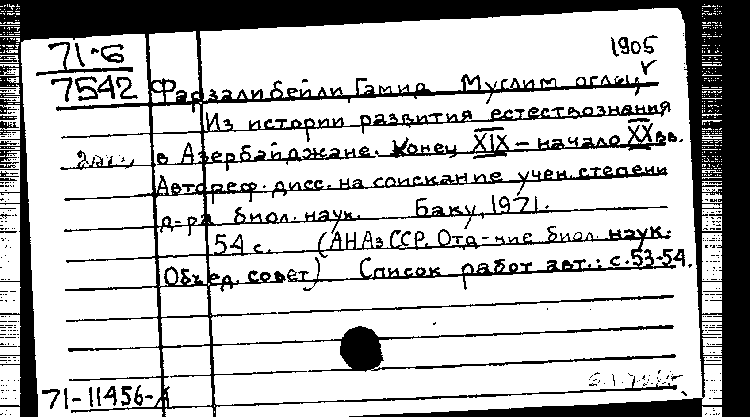 71-Б
7542
1905
Фарзалибейли, Гамид Муслим оглы
Из истории развития естествознания
в Азербайджане. Конец XIX - начало XX вв.
Автореф. дисс. на соискание учен. степени
д-ра биол. наук. Баку, 1971.
54 с. (АН АзССР. Отд-ние биол. наук.
Объед. совет) Список работ авт.: с. 53-54.
71-11456-А